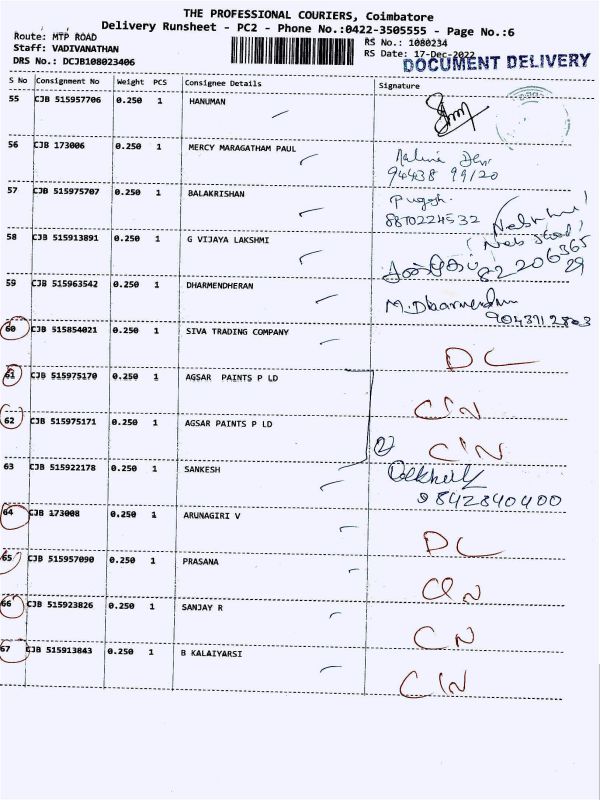 THE PROFESSIONAL COURIERS, Coimbatore
Delivery Runsheet - PC2 - Phone No.:0422-3505555 - Page No.:6
Route: MTP ROAD
RS No.: 1080234
Staff: VADIVANATHAN
RS Date: 17-Dec-2022
DRS No.: DCJB108023406
DOCUMENT DELIVERY
S No Consignment No Weight PCS Consignee Details Signature
55 CJB 515957706 0.250 1 HANUMAN
56 CJB 173006 0.250 1 MERCY MARAGATHAM PAUL
94438 99120
57 CJB 515975707 0.250 1 BALAKRISHAN
8870224532
58 CJB 515913891 0.250 1 G VIJAYA LAKSHMI
59 CJB 515963542 0.250 1 DHARMENDHERAN M.Dharmendran
60 CJB 515854021 0.250 1 SIVA TRADING COMPANY DC
61 CJB 515975170 0.250 1 AGSAR PAINTS P LD CIN
62 CJB 515975171 0.250 1 AGSAR PAINTS P LD CIN
63 CJB 515922178 0.250 1 SANKESH
9842840400
64 CJB 173008 0.250 1 ARUNAGIRI V DC
65 CJB 515957090 0.250 1 PRASANA
66 CJB 515923826 0.250 1 SANJAY R CN
67 CJB 515913843 0.250 1 B KALAIYARSI CIN